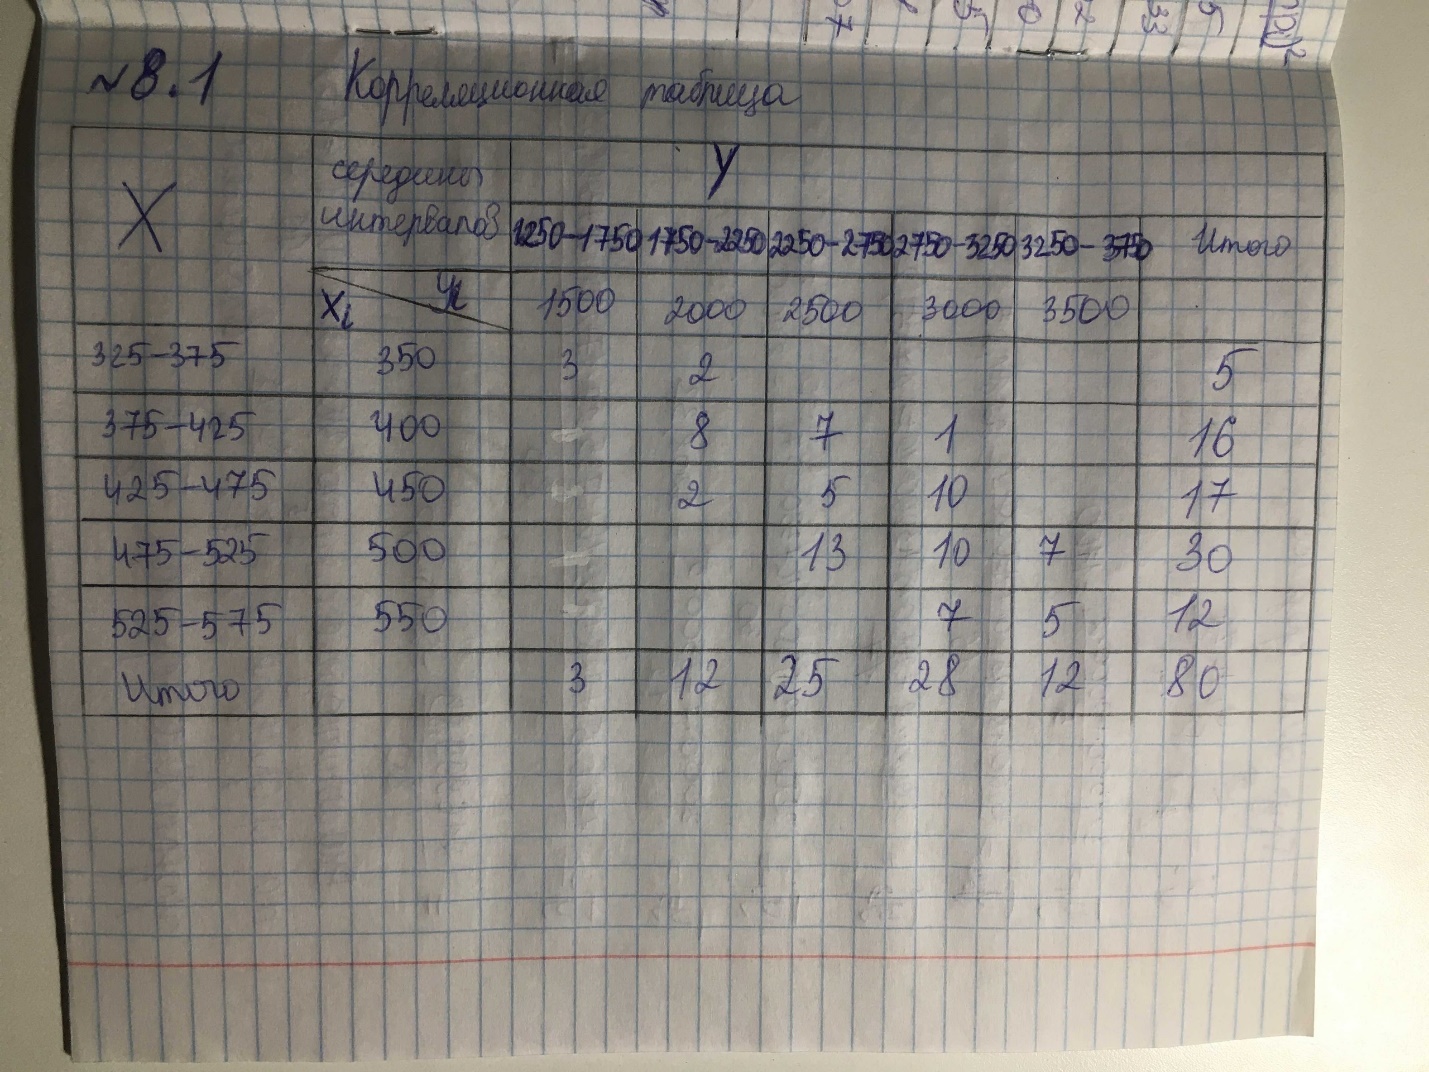 №8.1 Корреляционная таблица
X середины интервалов Y
1250-1750 1750-2250 2250-2750 2750-3250 3250-3750 Итого
Xi yi 1500 2000 2500 3000 3500
325-375 350 3 2 5
375-425 400 8 7 1 16
425-475 450 2 5 10 17
475-525 500 13 10 7 30
525-575 550 7 5 12
Итого 3 12 25 28 12 80